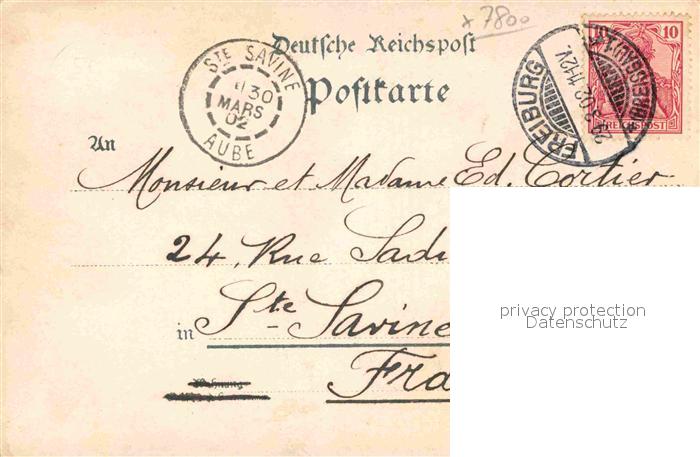 x 7800
Deutsche Reichspost
Postkarte
STE SAVINE
30
MARS
02
AUBE
FREIBURG
10 10
REICHSPOST
An
Monsieur et Madame Ed. Cortier
24, Rue Sadi
in Ste Savine
Fra
privacy protection
Datenschutz